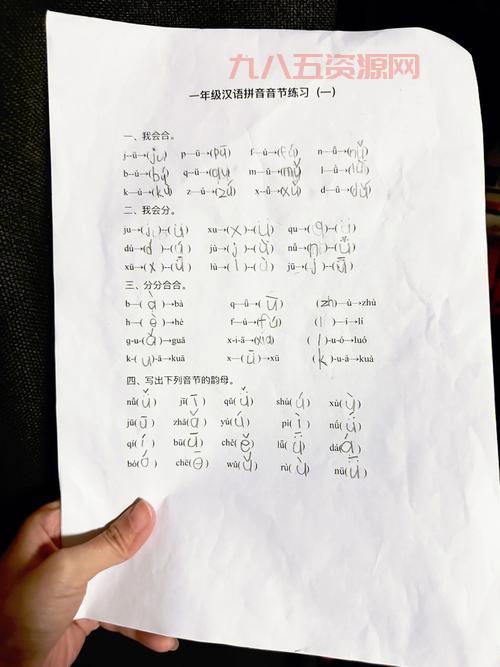 九八五资源网
一年级汉语拼音音节练习（一）
一、我会合。
j--ü→(ju) p—ū→(pū) f—ú→(fú) n—ǚ→(nǚ)
b--ú→(bú) q--ū→(qu) m—ǔ→(mǔ) l—ǜ→(lǜ)
k—ú→(kú) z—ú→(zú) x--ǚ→(xǔ) d—ú→(dú)
二、我会分。
ju→(j)--(ü) xu→(x)--(ü) qu→(q)--(ü)
dú→(d)--(ú) jù→(j)--(ǜ) nǚ→(n)--(ǚ)
xū→(x)--(ǖ) lù→(l)--(ù) jū→(j)--(ǖ)
三、分分合合。
b—(à)→bà q—ǖ→(ū) (zh)—ù→zhù
h—(è)→hè f—ú→(fú) (l)—í→lí
g-u-(ā)→guā x-i-ā→(xiā) (l)-u-ó→luó
k-(u)-ā→kuā x—(ū)→xū (k)-u-à→kuà
四、写出下列音节的韵母。
nǚ(ǚ) jī(ī) qǔ(ǚ) shú(ú) xù(ù)
jū(ū) zhǎ(ǎ) yú(ú) pì(ì) nǘ(ǘ)
qí(í) bū(ū) chě(ě) lǖ(ǖ) dá(á)
bó(ó) chē(ē) wǔ(ǔ) rù(ù) nǖ(ǖ)